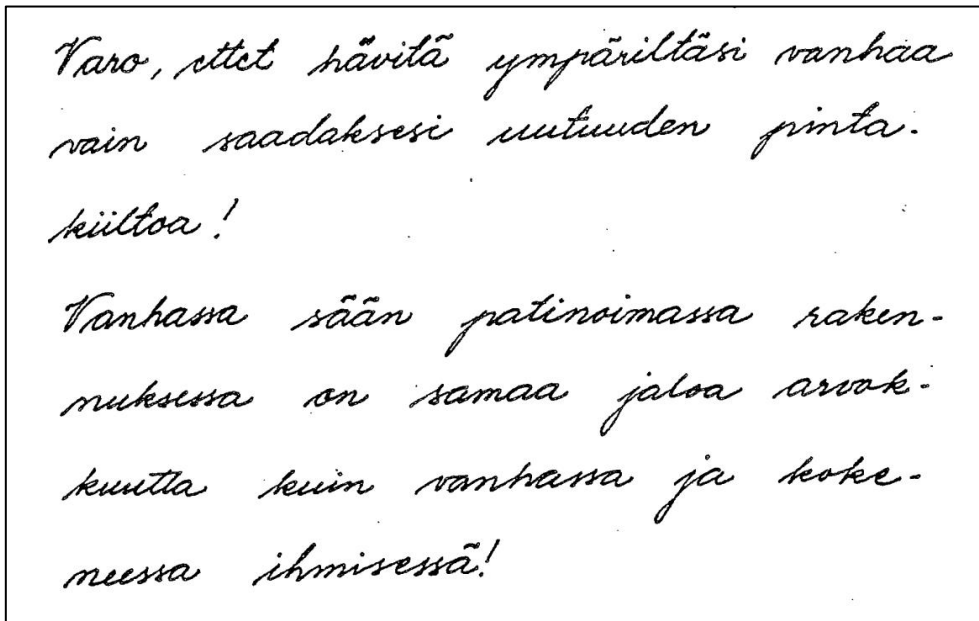 Varo, ettet hävitä ympäriltäsi vanhaa
vain saadaksesi uutuuden pinta-
kiiltoa!
Vanhassa sään patinoimassa raken-
nuksessa on samaa jaloa arvok-
kuutta kuin vanhassa ja koke-
neessa ihmisessä!